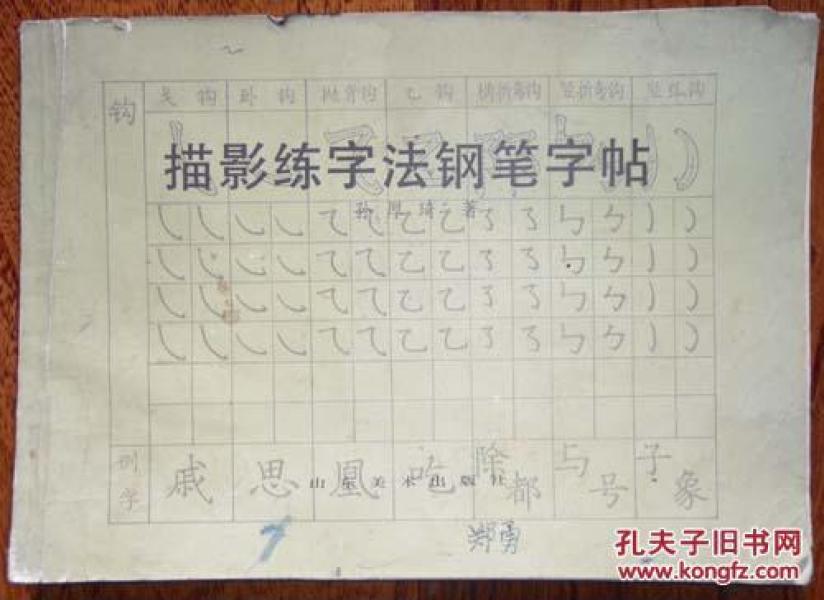 钩
戈钩 卧钩 抛背钩 乙钩 横折弯钩 竖折弯钩 竖弧钩
描影练字法钢笔字帖
著
例字
戚 思 凰 吃 除都 与号 子象
美术出版社
郑勇
孔夫子旧书网
www.kongfz.com